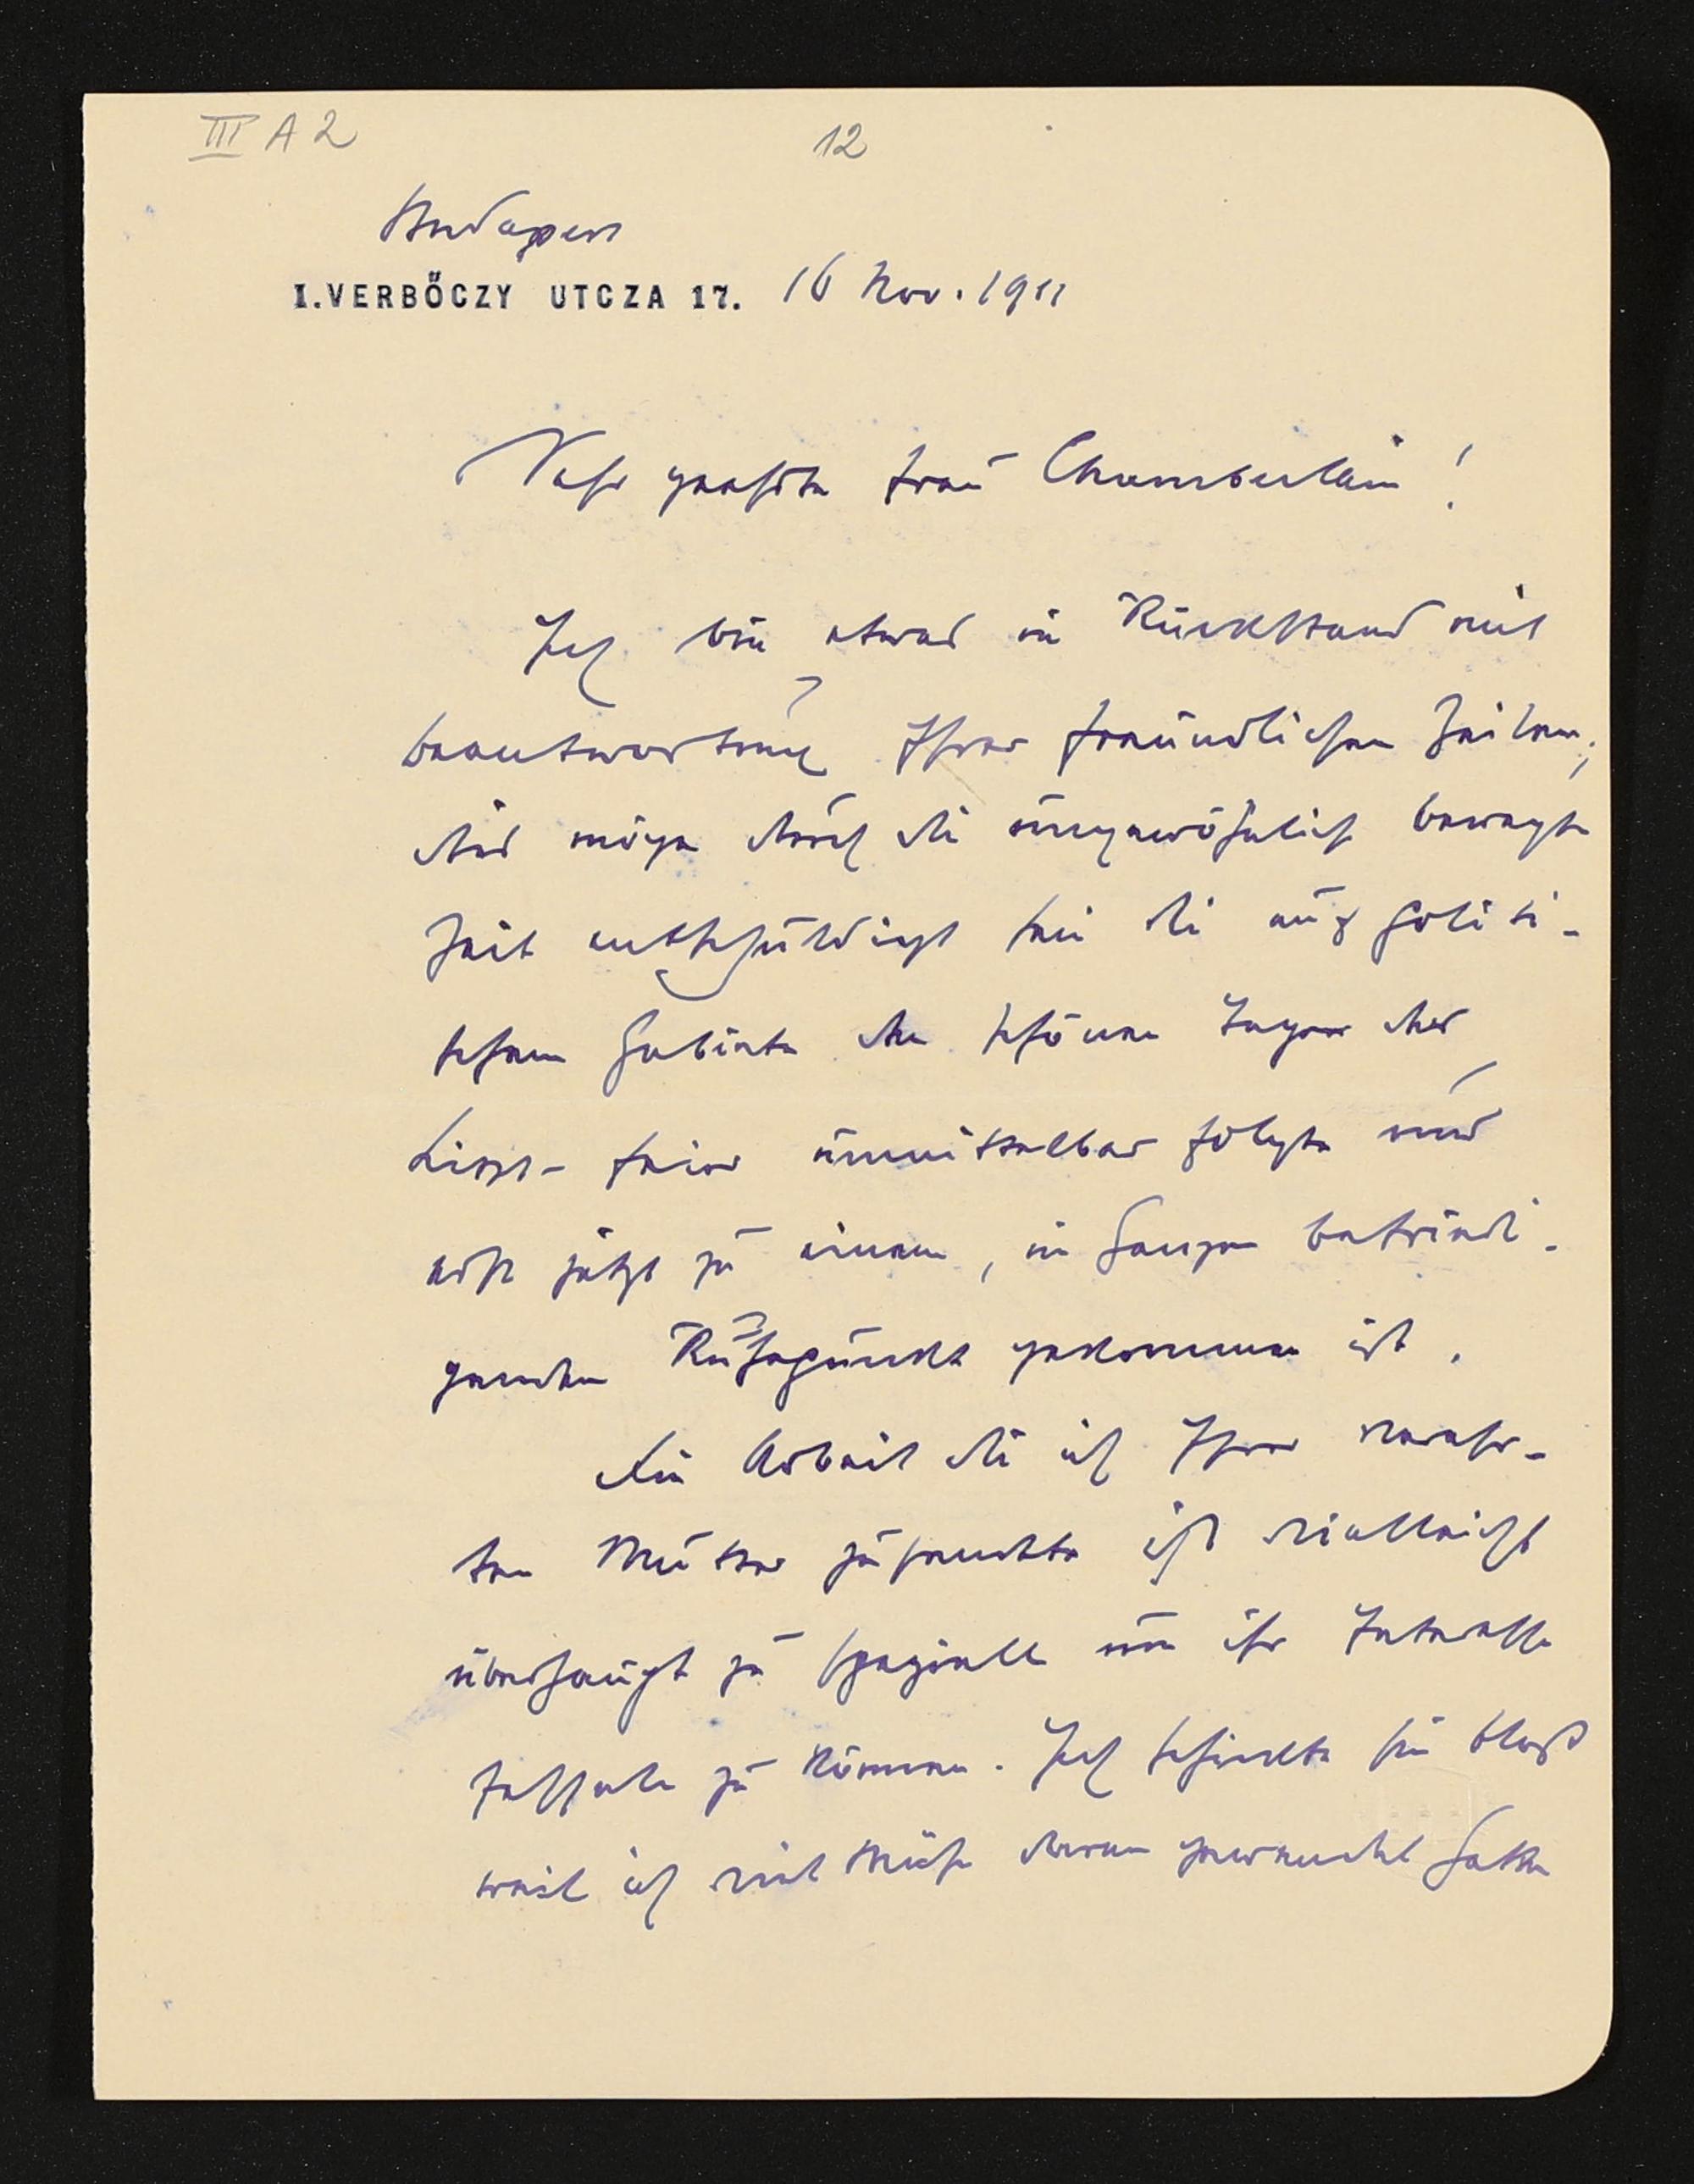 III A 2
12
Budapest
I. VERBŐCZY UTCZA 17. 16 Nov. 1911
Sehr geehrte Frau Chamberlain!
Ich bin etwas in Rückstand mit
beantwortung Ihrer freundlichen Zeilen;
das möge durch die ungewöhnlich bewegte
Zeit entschuldigt sein die auf politi-
schem Gebiete den schönen Tagen der
Liszt-feier unmittelbar folgte und
erst jetzt zu einem, im Ganzen befriedi-
genden Ruhepunkt gekommen ist.
Die Arbeit die ich Ihrer verehr-
ten Mutter zusendete ist vielleicht
überhaupt zu speziell um ihr Interesse
fesseln zu können. Ich schickte sie bloß
weil ich viel Mühe daran gewendet hatte